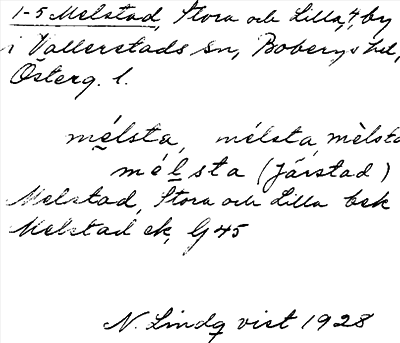 1-5 Melstad, Stora och Lilla, 4, by
i Vallerstads sn, Bobergs hd,
Österg. l.
mélsta, mélsta, mèlsta
mélsta (Járstad)
Melstad, Stora och Lilla bek
Melstad ek, G45
N. Lindqvist 1928